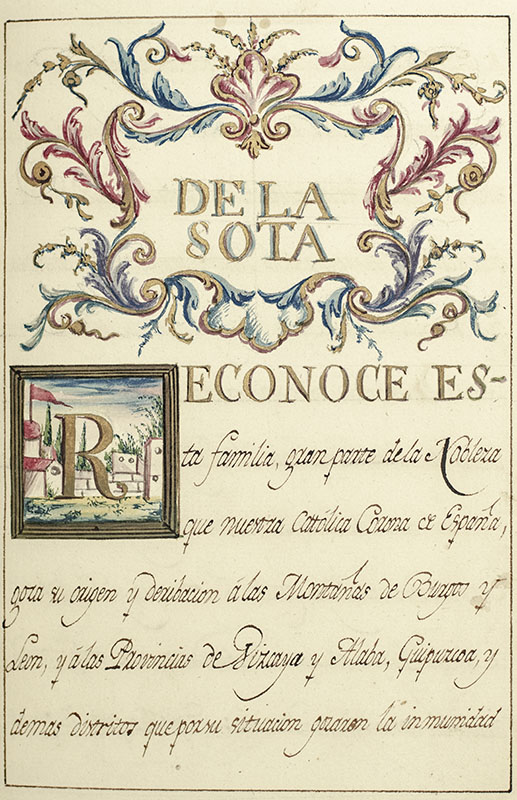 DE LA
SOTA
RECONOCE ES-
ta familia, gran parte de la Nobleza
que nuestra Catolica Corona de España,
goza su origen y deribacion á las Montañas de Burgos y
Leon, y á las Provincias de Vizcaya y Alaba, Guipuzcoa, y
demas distritos que por su situacion gozaron la inmunidad